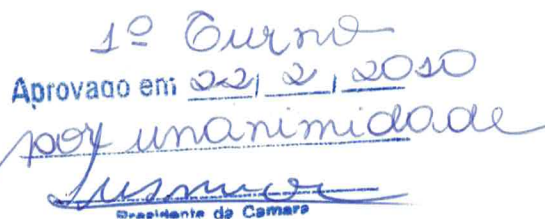 1º Turno
Aprovado em 22/ 2 / 2010
por unanimidade
Presidente da Camara